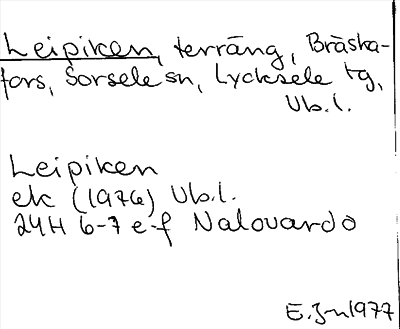 Leipiken, terräng, Bräska-
fors, Sorsele sn, Lycksele tg,
Vb.l.
Leipiken
ek (1976) Vb.l.
24H 6-7 e-f Nalovardo
E.Jn 1977